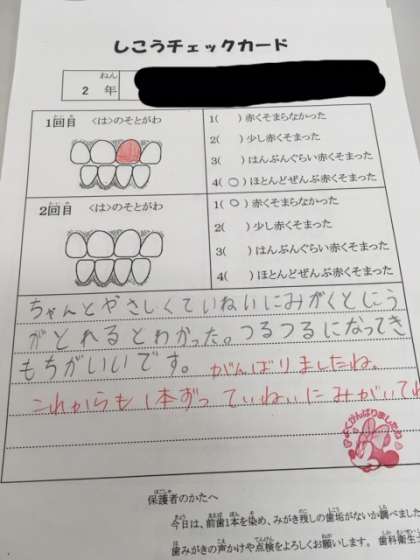 しこうチェックカード
2 年
1回目 <は>のそとがわ
1( )赤くそまらなかった
2( )少し赤くそまった
3( )はんぶんぐらい赤くそまった
4(○)ほとんどぜんぶ赤くそまった
2回目 <は>のそとがわ
1(○)赤くそまらなかった
2( )少し赤くそまった
3( )はんぶんぐらい赤くそまった
4( )ほとんどぜんぶ赤くそまった
ちゃんとやさしくていねいにみがくとしこう
がとれるとわかった。つるつるになってき
もちがいいです。がんばりましたね。
これからも1本ずつていねいにみがいてね
よくがんばりましたね
保護者のかたへ
今日は、前歯1本を染め、みがき残しの歯垢がないか調べました
歯みがきの声かけや点検をよろしくお願いします。歯科衛生